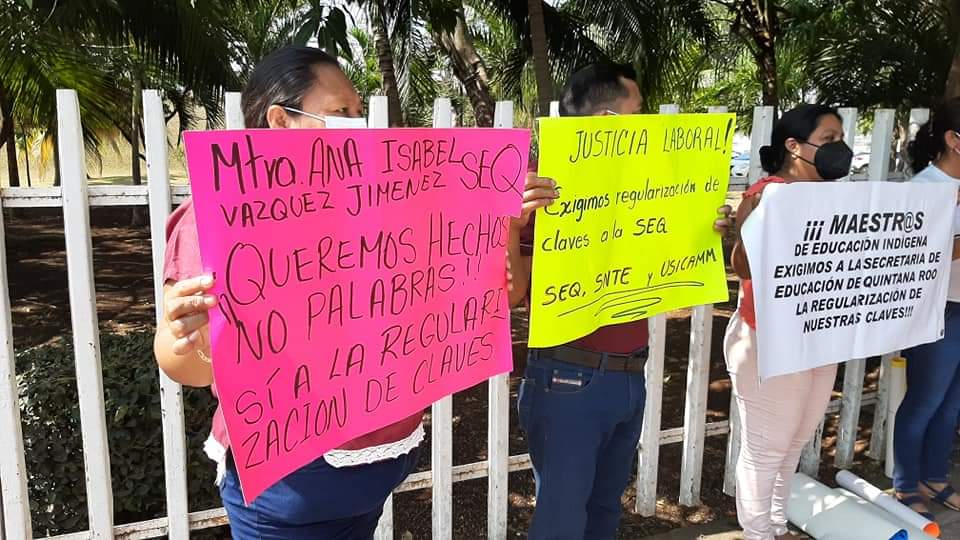 Mtra. ANA ISABEL SEQ
VAZQUEZ JIMENEZ
¡QUEREMOS HECHOS
NO PALABRAS!!
SÍ A LA REGULARI
ZACION DE CLAVES
JUSTICIA LABORAL!
Exigimos regularización de
claves a la SEQ
SEQ, SNTE y USICAMM
¡¡¡ MAESTR@S
DE EDUCACIÓN INDÍGENA
EXIGIMOS A LA SECRETARIA DE
EDUCACIÓN DE QUINTANA ROO
LA REGULARIZACIÓN DE
NUESTRAS CLAVES!!!